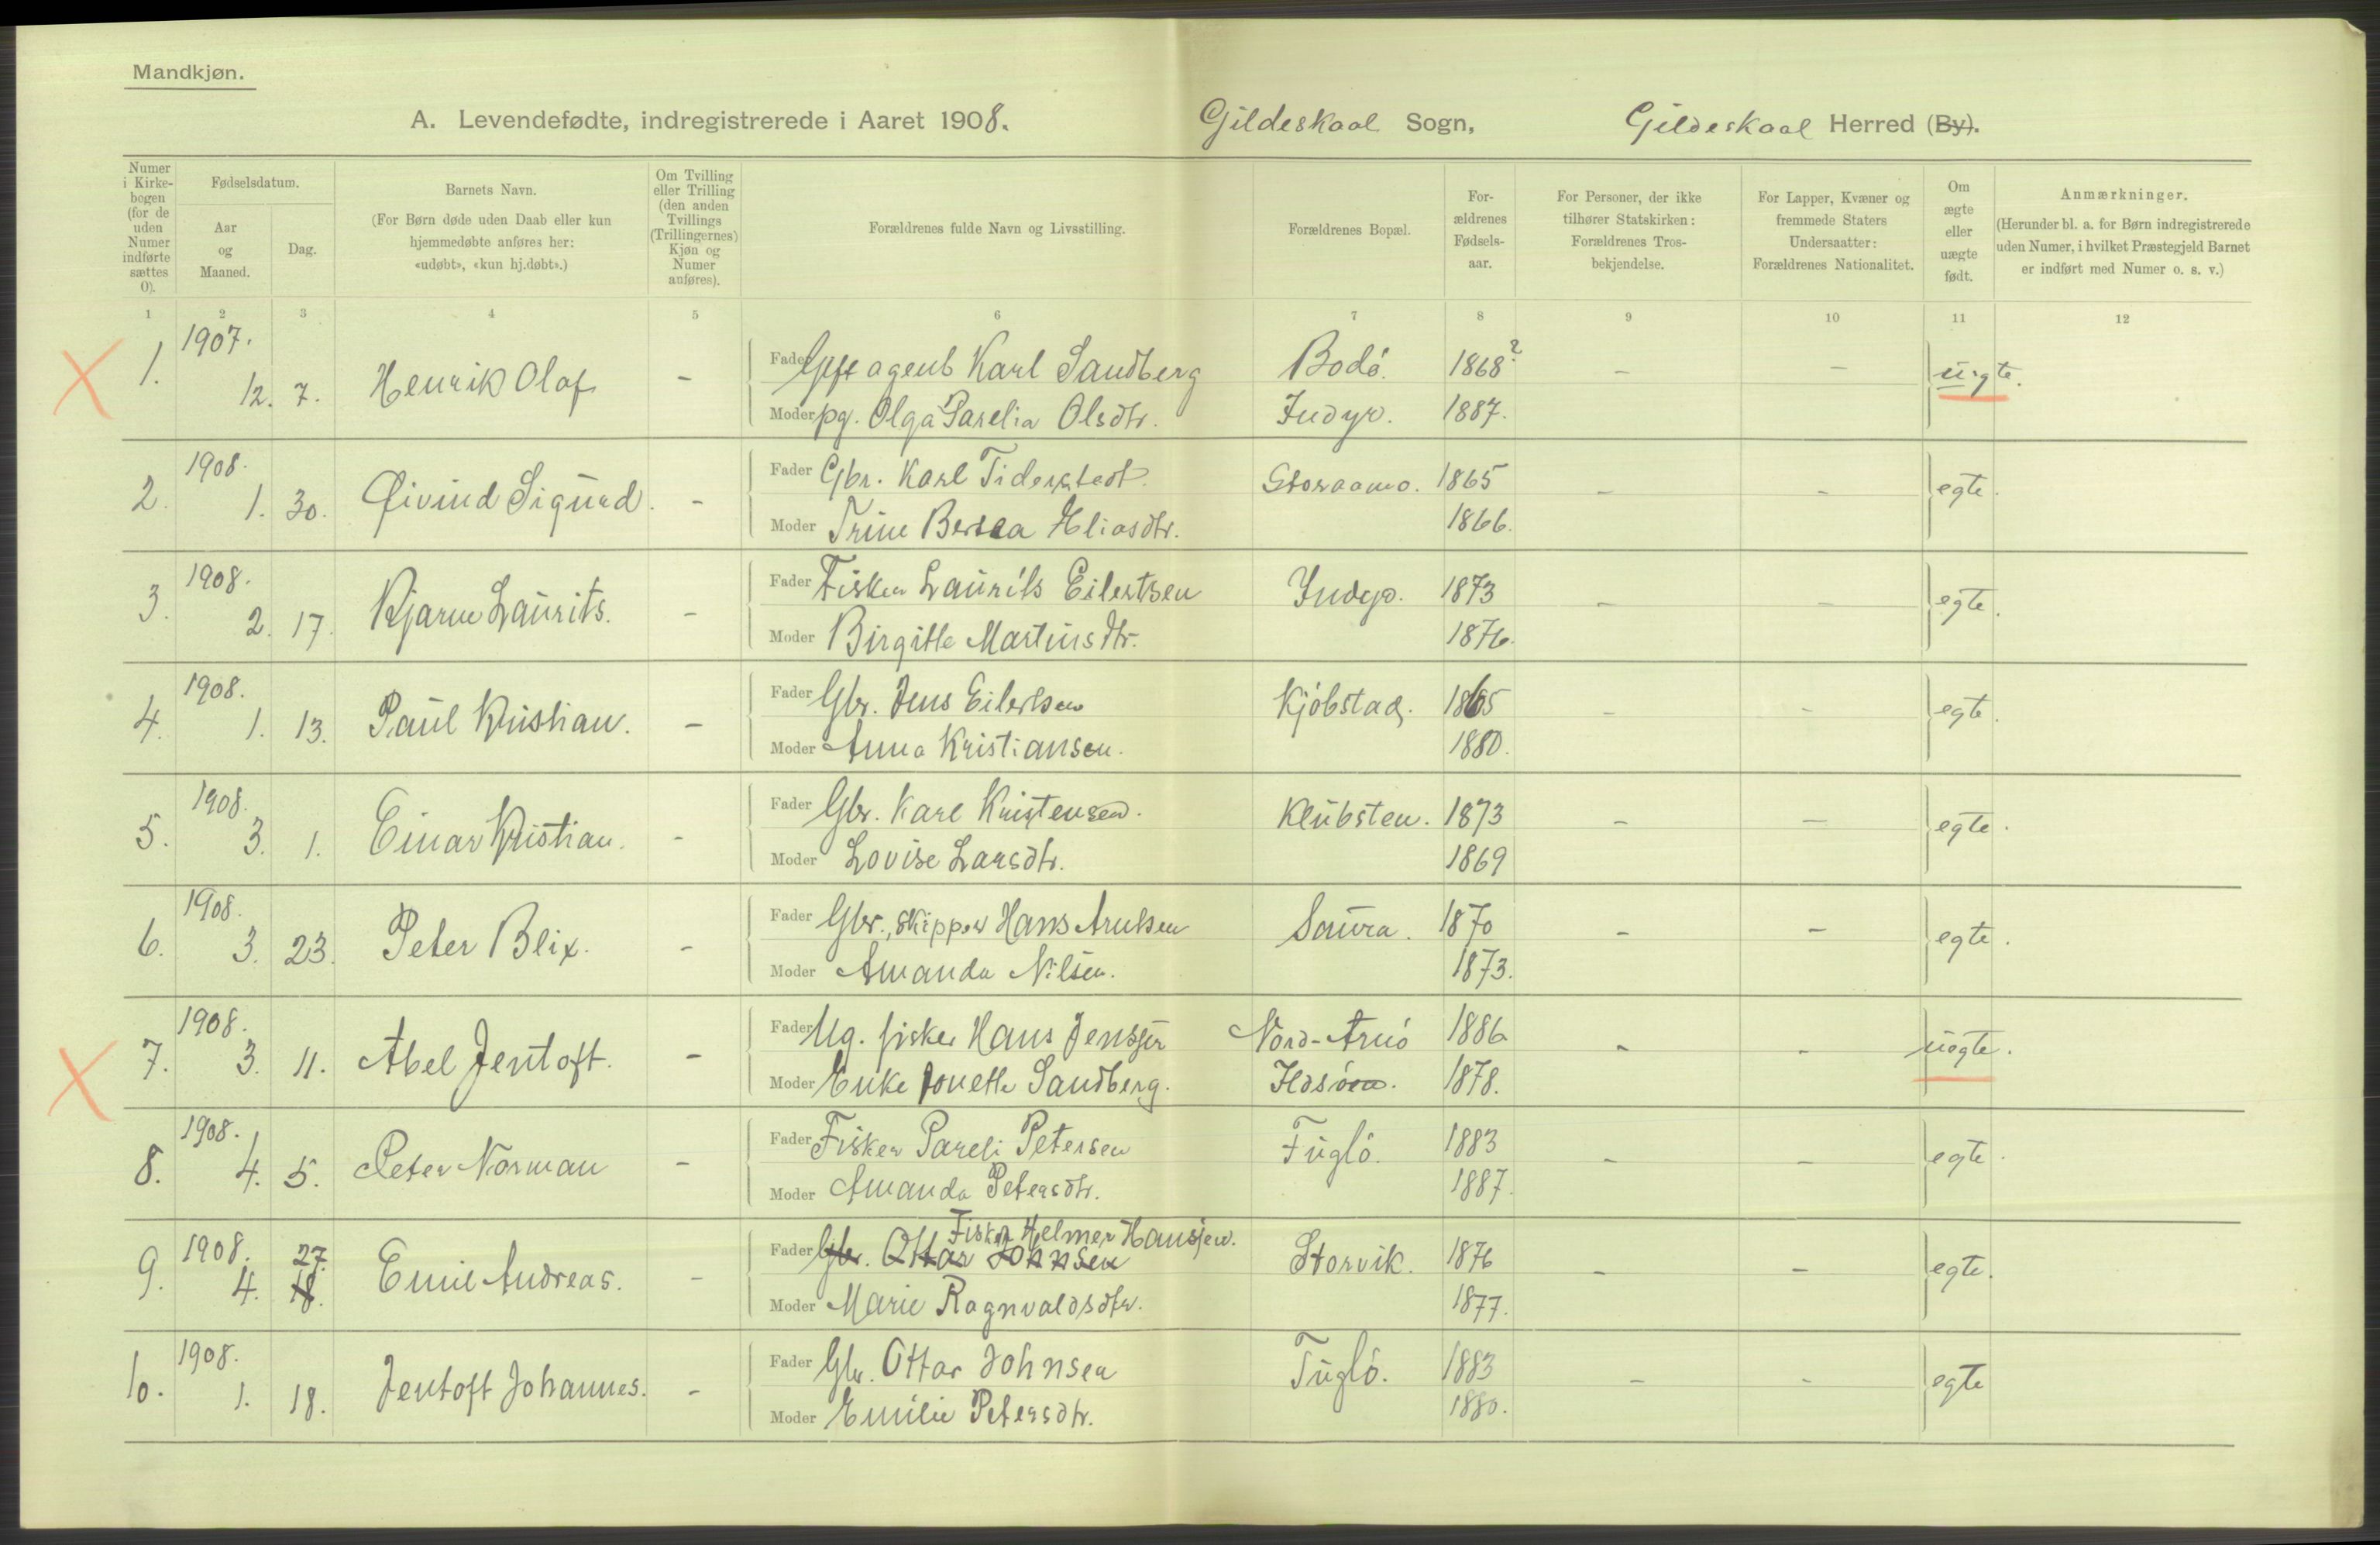 Mandkjøn.
A. Levendefødte, indregistrerede i Aaret 1908. Gildeskaal Sogn, Gildeskaal Herred (By).
Numer i Kirkebogen (for de uden Numer indførte sættes 0).
Fødselsdatum.
Aar og Maaned.
Dag.
Barnets Navn.
(For Børn døde uden Daab eller kun hjemmedøbte anføres her: «udøbt», «kun hj.døbt».)
Om Tvilling eller Trilling (den anden Tvillings (Trillingernes) Kjøn og Numer anføres).
Forældrenes fulde Navn og Livsstilling.
Forældrenes Bopæl.
Forældrenes Fødselsaar.
For Personer, der ikke tilhører Statskirken: Forældrenes Trosbekjendelse.
For Lapper, Kvæner og fremmede Staters Undersaatter: Forældrenes Nationalitet.
Om ægte eller uægte født.
Anmærkninger.
(Herunder bl. a. for Børn indregistrerede uden Numer, i hvilket Præstegjeld Barnet er indført med Numer o. s. v.)
1 2 3 4 5 6 7 8 9 10 11 12
1. 1907. 12. 7. Henrik Olaf - Fader agent Karl Sandberg Bodó. 1868? - - uegte.
Moder pg. Olga Parelia Olsdtr. Indyr. 1887.
2. 1908. 1. 30. Øivind Sigurd. - Fader Gbr. Karl Storaamo. 1865 - - egte.
Moder Trine Eliasdtr. 1866.
3. 1908. 2. 17. Bjarne Laurits. - Fader Fisker Laurits Eilertsen Indyr. 1873 - - egte.
Moder Birgitte Martinsdtr. 1876.
4. 1908. 1. 13. Paul Kristian. - Fader Gbr. Jens Eilertsen Kjóbstad. 1865 - - egte.
Moder Anna Kristiansen. 1880.
5. 1908. 3. 1. Einar Kristian. - Fader Gbr. Karl Kristensen. Klubsten. 1873 - - egte.
Moder Lovise Larsdtr. 1869
6. 1908. 3. 23. Peter Blix. - Fader Gbr., skipper Hans Arntsen Saura. 1870 - - egte.
Moder Amanda Nilsen. 1873.
7. 1908. 3. 11. Abel Jentoft. - Fader Ug. fisker Hans Jenssen Nord-Arnó 1886 - - uegte.
Moder Enke Jonette Sandberg. 1878.
8. 1908. 4. 5. Peter Norman - Fader Fisker Pareli Petersen Fugló. 1883 - - egte.
Moder Amanda Petersdtr. 1887.
Fisker Helmer Hansen.
9. 1908. 4. 27. 18. Emil Andreas. - Fader Gbr. Ottar Johnsen Storvik. 1876 - - egte.
Moder Marie Ragnvaldsdtr. 1877.
10. 1908. 1. 18. Jentoft Johannes. - Fader Gbr. Ottar Johnsen Fugló. 1883 - - egte
Moder Emilie Petersdtr. 1880.